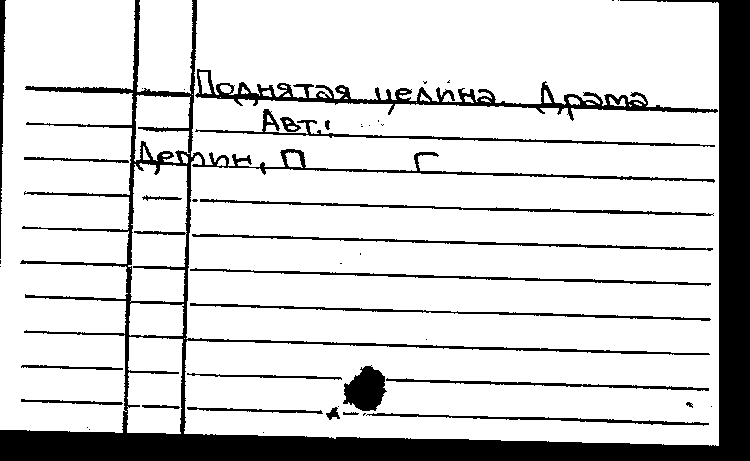 Поднятая целина. Драма.
Авт.:
Демин, П Г